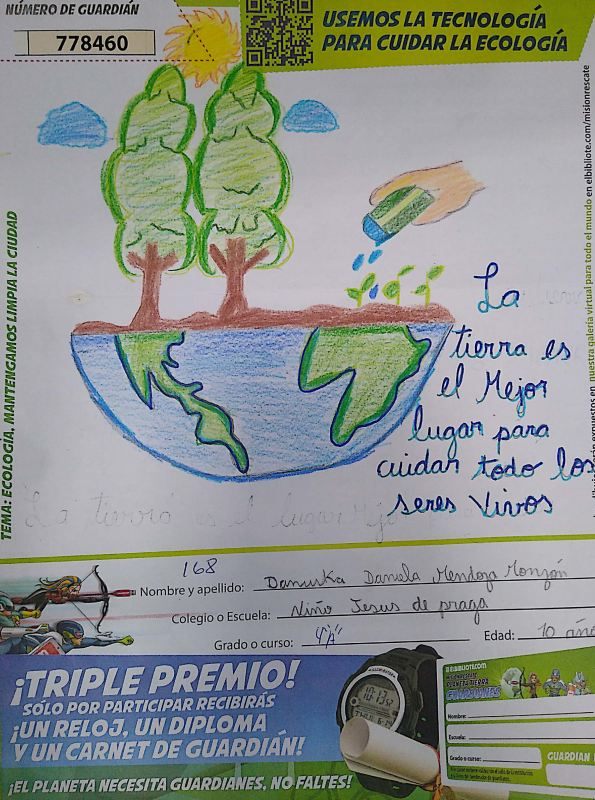 NÚMERO DE GUARDIÁN
778460
USEMOS LA TECNOLOGÍA
PARA CUIDAR LA ECOLOGÍA
TEMA: ECOLOGÍA, MANTENGAMOS LIMPIA LA CIUDAD
nuestra galería virtual para todo el mundo en elbibliote.com/misionrescate
La
tierra es
el Mejor
lugar para
cuidar todo los
seres Vivos
168
Nombre y apellido: Danuska Daniela Mendoza Monzón
Colegio o Escuela: Niño Jesus de praga
Grado o curso: 4"A" Edad: 10 añe
¡TRIPLE PREMIO!
SÓLO POR PARTICIPAR RECIBIRÁS
¡UN RELOJ, UN DIPLOMA
Y UN CARNET DE GUARDIÁN!
¡EL PLANETA NECESITA GUARDIANES, NO FALTES!
BIBLIOTE.COM
MISIÓN RESCATE
PLANETA TIERRA
GUARDIANES
Nombre:
Escuela:
Grado o curso:
GUARDIÁN